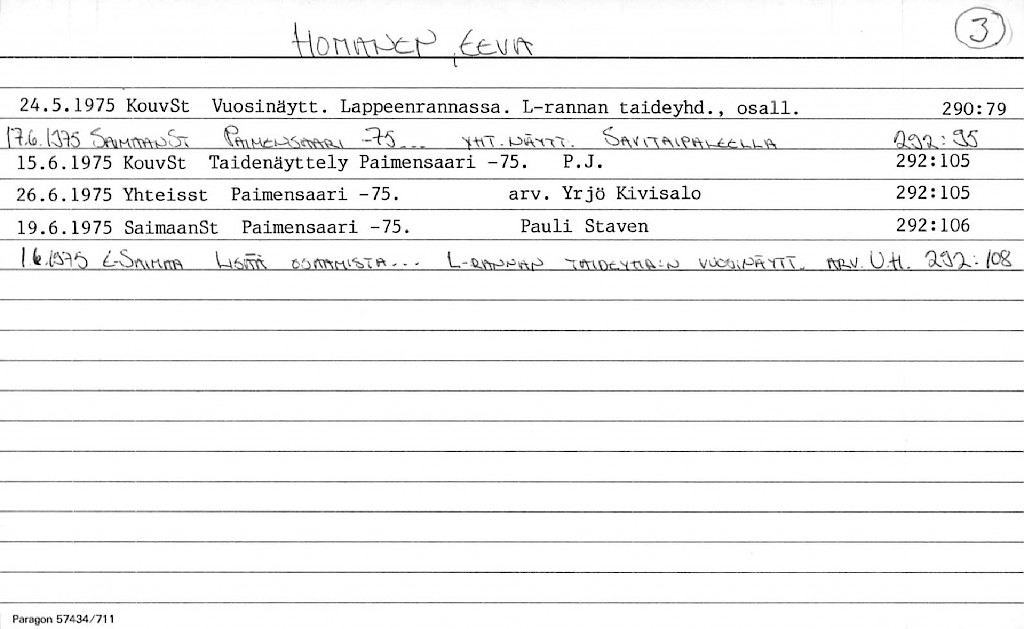 HOMANEN, EEVA 3
24.5.1975 KouvSt Vuosinäytt. Lappeenrannassa. L-rannan taideyhd., osall. 290:79
17.6.1975 SAIMAANST PAIMENSAARI -75... YHT.NÄYTT. SAVITAIPALEELLA 292:95
15.6.1975 KouvSt Taidenäyttely Paimensaari -75. P.J. 292:105
26.6.1975 Yhteisst Paimensaari -75. arv. Yrjö Kivisalo 292:105
19.6.1975 SaimaanSt Paimensaari -75. Pauli Staven 292:106
1.6.1975 E-SAIMAA LISÄÄ OSAAMISTA... L-RANNAN TAIDEYHD:N VUOSINÄYTT. ARV. U.H. 292:108
Paragon 57434/711